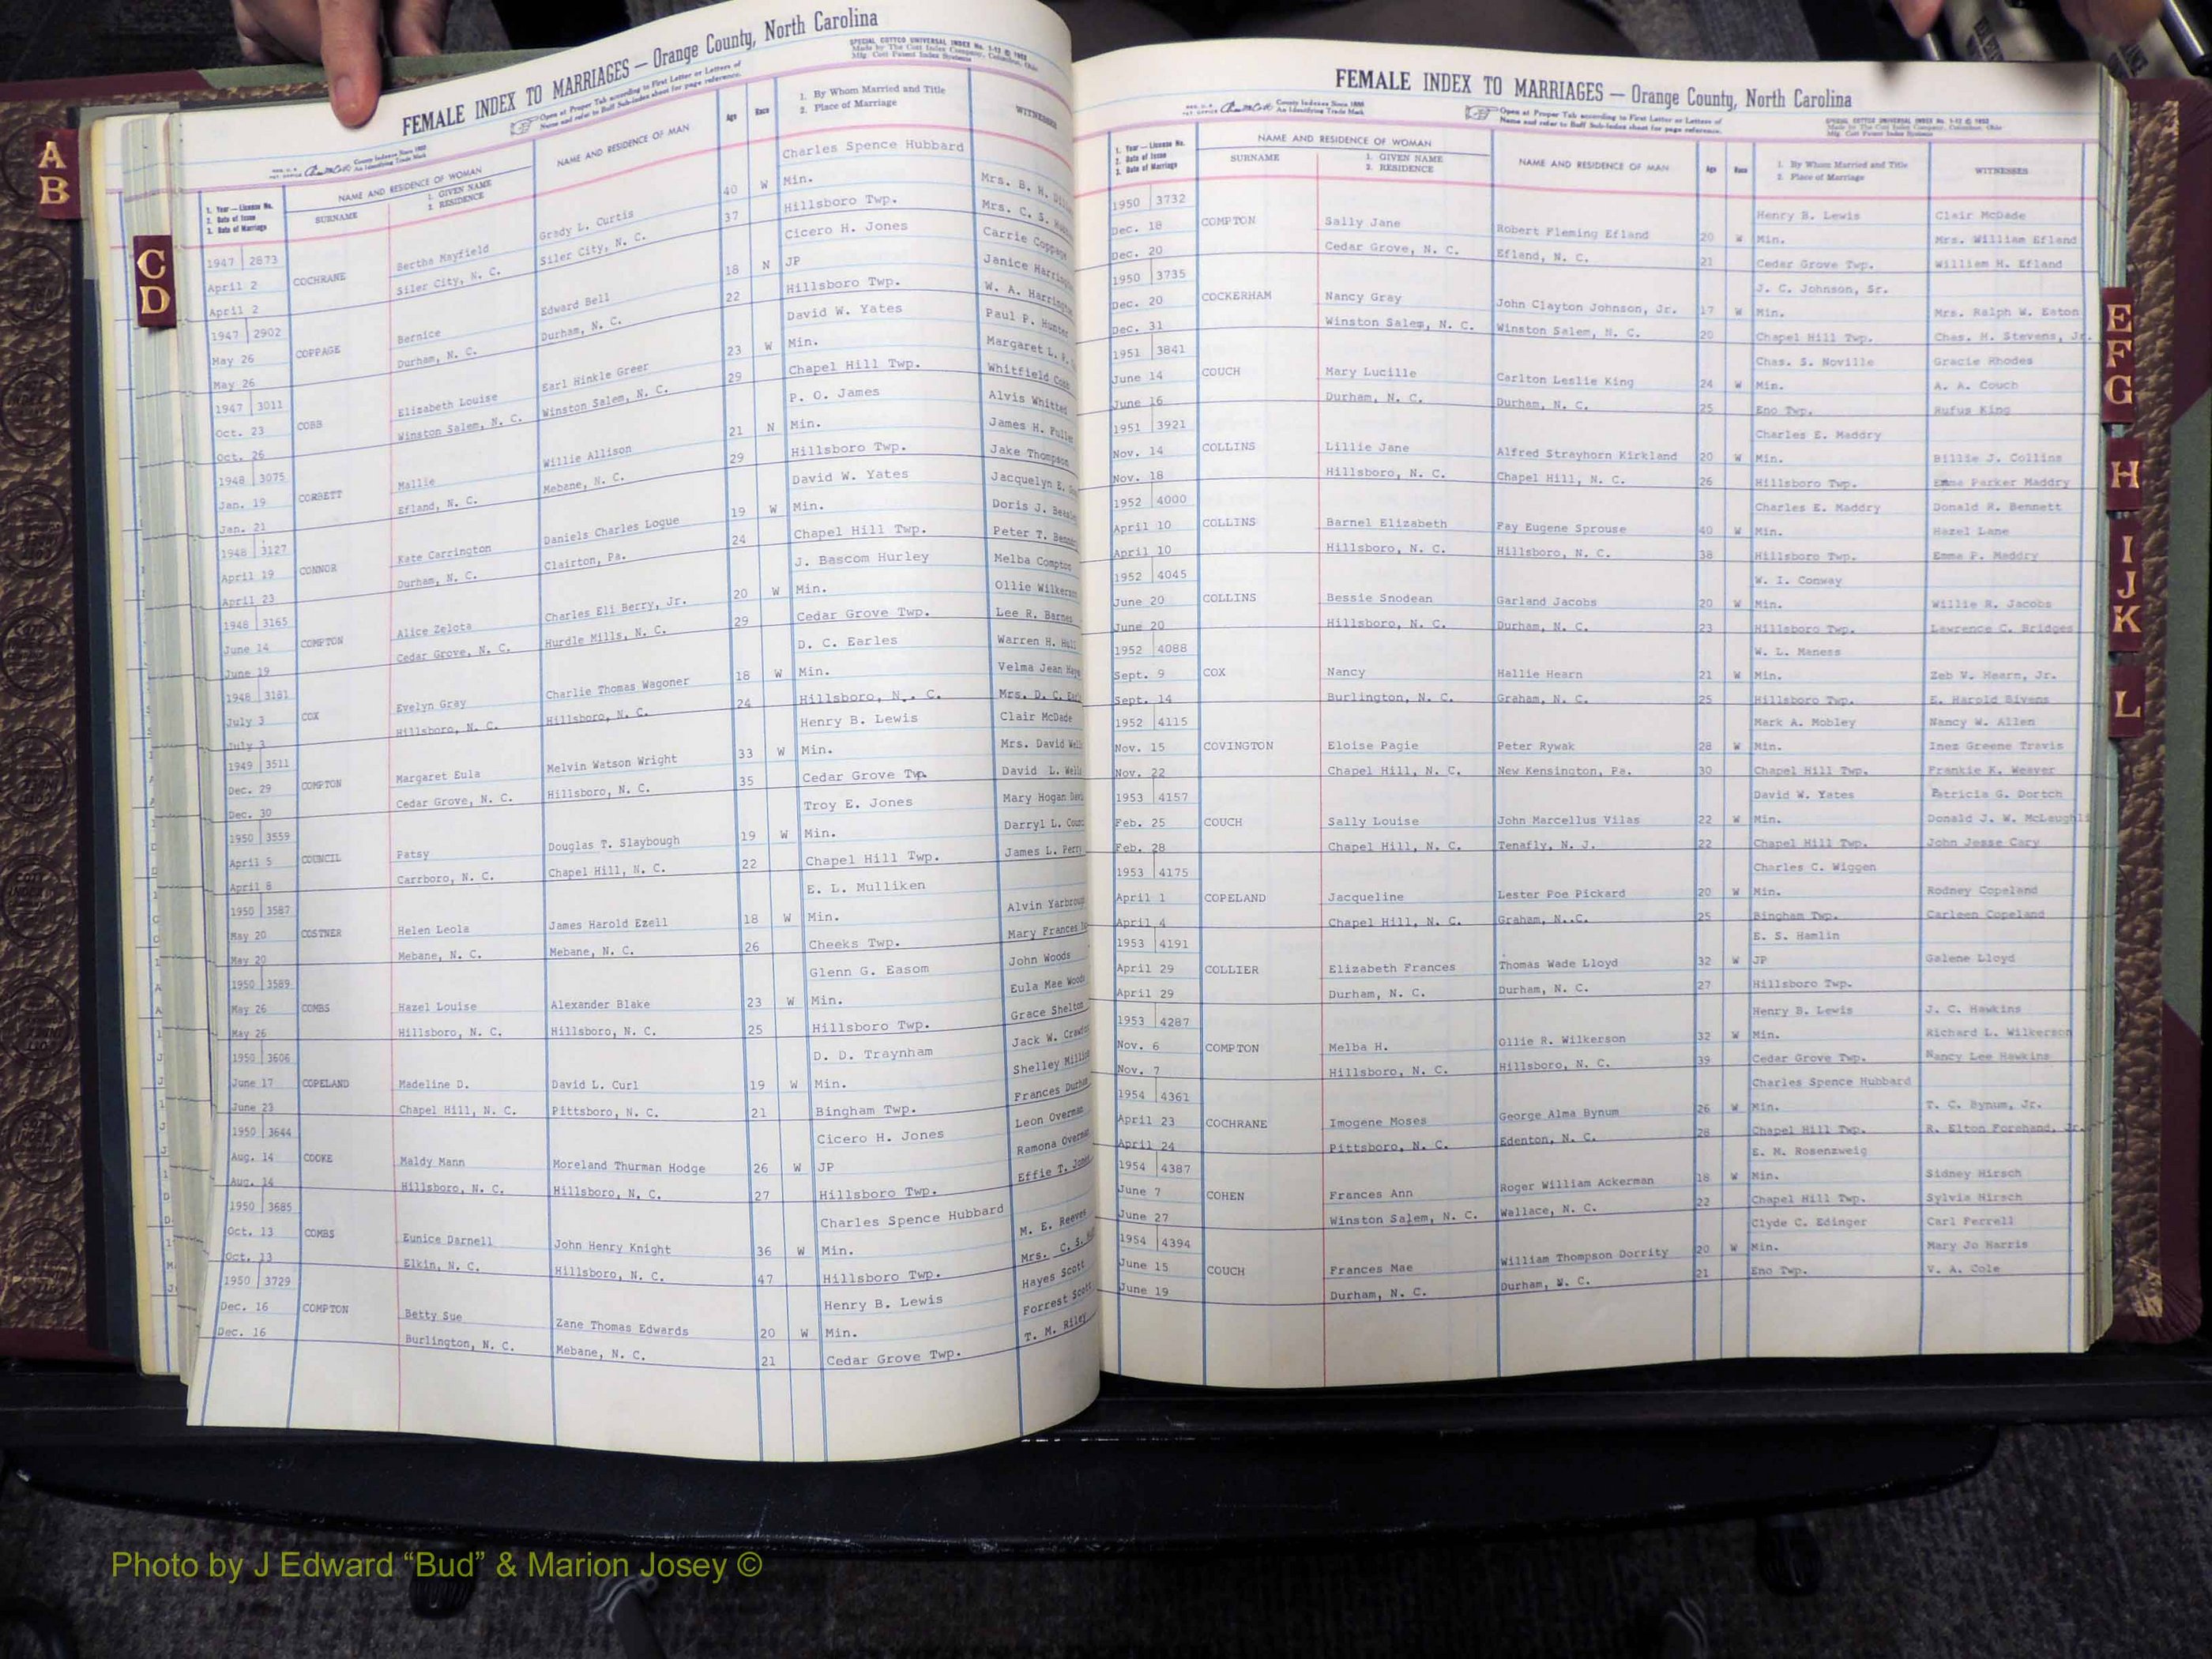 A
B
C
D
FEMALE INDEX TO MARRIAGES — Orange County, North Carolina
SPECIAL COTTCO UNIVERSAL INDEX No. 1-12 © 1952
Made by The Cott Index Company, Columbus, Ohio
Mfg. Cott Patent Index Systems
Open at Proper Tab according to First Letter or Letters of
Name and refer to Buff Sub-Index sheet for page reference.
County Indexes Since 1888
An Identifying Trade Mark
1. Year — License No.
2. Date of Issue
3. Date of Marriage
NAME AND RESIDENCE OF WOMAN
SURNAME
1. GIVEN NAME
2. RESIDENCE
NAME AND RESIDENCE OF MAN
Age
Race
1. By Whom Married and Title
2. Place of Marriage
WITNESSES
1947 2873 Charles Spence Hubbard Mrs. B. H.
April 2 COCHRANE Bertha Mayfield Grady L. Curtis 40 W Min. Mrs. C. S.
April 2 Siler City, N. C. Siler City, N. C. 37 Hillsboro Twp. Carrie Coppage
1947 2902 Cicero H. Jones Janice
May 26 COPPAGE Bernice Edward Bell 18 N JP W. A.
May 26 Durham, N. C. Durham, N. C. 22 Hillsboro Twp. Paul P. Hunter
1947 3011 David W. Yates Margaret L.
Oct. 23 COBB Elizabeth Louise Earl Hinkle Greer 23 W Min. Whitfield Cobb
Oct. 26 Winston Salem, N. C. Winston Salem, N. C. 29 Chapel Hill Twp. Alvis Whitted
1948 3075 P. O. James James H.
Jan. 19 CORBETT Mallie Willie Allison 21 N Min. Jake Thompson
Jan. 21 Efland, N. C. Mebane, N. C. 29 Hillsboro Twp.
1948 3127 David W. Yates Jacquelyn E.
April 19 CONNOR Kate Carrington Daniels Charles Logue 19 W Min. Doris J.
April 23 Durham, N. C. Clairton, Pa. 24 Chapel Hill Twp. Peter T.
1948 3165 J. Bascom Hurley Melba Compton
June 14 COMPTON Alice Zelota Charles Eli Berry, Jr. 20 W Min. Ollie Wilkerson
June 19 Cedar Grove, N. C. Hurdle Mills, N. C. 29 Cedar Grove Twp. Lee R. Barnes
1948 3181 D. C. Earles Warren H.
July 3 COX Evelyn Gray Charlie Thomas Wagoner 18 W Min. Velma Jean
July 3 Hillsboro, N. C. Hillsboro, N. C. 24 Hillsboro, N. C. Mrs. D. C.
1949 3511 Henry B. Lewis Clair McDade
Dec. 29 COMPTON Margaret Eula Melvin Watson Wright 33 W Min. Mrs. David
Dec. 30 Cedar Grove, N. C. Hillsboro, N. C. 35 Cedar Grove Twp. David L.
1950 3559 Troy E. Jones Mary Hogan
April 5 COUNCIL Patsy Douglas T. Slaybough 19 W Min. Darryl L.
April 8 Carrboro, N. C. Chapel Hill, N. C. 22 Chapel Hill Twp. James L. Perry
1950 3587 E. L. Mulliken Alvin
May 20 COSTNER Helen Leola James Harold Ezell 18 W Min. Mary Frances
May 20 Mebane, N. C. Mebane, N. C. 26 Cheeks Twp. John Woods
1950 3589 Glenn G. Easom Eula Mae Woods
May 26 COMBS Hazel Louise Alexander Blake 23 W Min. Grace Shelton
May 26 Hillsboro, N. C. Hillsboro, N. C. 25 Hillsboro Twp. Jack W.
1950 3606 D. D. Traynham Shelley
June 17 COPELAND Madeline D. David L. Curl 19 W Min. Frances Durham
June 23 Chapel Hill, N. C. Pittsboro, N. C. 21 Bingham Twp. Leon Overman
1950 3644 Cicero H. Jones Ramona Overman
Aug. 14 COOKE Maldy Mann Moreland Thurman Hodge 26 W JP Effie T. Jones
Aug. 14 Hillsboro, N. C. Hillsboro, N. C. 27 Hillsboro Twp.
1950 3685 Charles Spence Hubbard M. E. Reeves
Oct. 13 COMBS Eunice Darnell John Henry Knight 36 W Min. Mrs. C. S.
Oct. 13 Elkin, N. C. Hillsboro, N. C. 47 Hillsboro Twp. Hayes Scott
1950 3729 Henry B. Lewis Forrest Scott
Dec. 16 COMPTON Betty Sue Zane Thomas Edwards 20 W Min. T. M. Riley
Dec. 16 Burlington, N. C. Mebane, N. C. 21 Cedar Grove Twp.
FEMALE INDEX TO MARRIAGES — Orange County, North Carolina
County Indexes Since 1888
An Identifying Trade Mark
Open at Proper Tab according to First Letter or Letters of
Name and refer to Buff Sub-Index sheet for page reference.
SPECIAL COTTCO UNIVERSAL INDEX No. 1-12 © 1952
Made by The Cott Index Company, Columbus, Ohio
Mfg. Cott Patent Index Systems
1. Year — License No.
2. Date of Issue
3. Date of Marriage
NAME AND RESIDENCE OF WOMAN
SURNAME
1. GIVEN NAME
2. RESIDENCE
NAME AND RESIDENCE OF MAN
Age
Race
1. By Whom Married and Title
2. Place of Marriage
WITNESSES
1950 3732 Henry B. Lewis Clair McDade
Dec. 18 COMPTON Sally Jane Robert Fleming Efland 20 W Min. Mrs. William Efland
Dec. 20 Cedar Grove, N. C. Efland, N. C. 21 Cedar Grove Twp. William H. Efland
1950 3735 J. C. Johnson, Sr.
Dec. 20 COCKERHAM Nancy Gray John Clayton Johnson, Jr. 17 W Min. Mrs. Ralph W. Eaton
Dec. 31 Winston Salem, N. C. Winston Salem, N. C. 20 Chapel Hill Twp. Chas. H. Stevens, Jr.
1951 3841 Chas. S. Noville Gracie Rhodes
June 14 COUCH Mary Lucille Carlton Leslie King 24 W Min. A. A. Couch
June 16 Durham, N. C. Durham, N. C. 25 Eno Twp. Rufus King
1951 3921 Charles E. Maddry
Nov. 14 COLLINS Lillie Jane Alfred Strayhorn Kirkland 20 W Min. Billie J. Collins
Nov. 18 Hillsboro, N. C. Chapel Hill, N. C. 26 Hillsboro Twp. Emma Parker Maddry
1952 4000 Charles E. Maddry Donald R. Bennett
April 10 COLLINS Barnel Elizabeth Fay Eugene Sprouse 40 W Min. Hazel Lane
April 10 Hillsboro, N. C. Hillsboro, N. C. 38 Hillsboro Twp. Emma P. Maddry
1952 4045 W. I. Conway
June 20 COLLINS Bessie Snodean Garland Jacobs 20 W Min. Willie R. Jacobs
June 20 Hillsboro, N. C. Durham, N. C. 23 Hillsboro Twp. Lawrence C. Bridges
1952 4088 W. L. Maness
Sept. 9 COX Nancy Hallie Hearn 21 W Min. Zeb V. Hearn, Jr.
Sept. 14 Burlington, N. C. Graham, N. C. 25 Hillsboro Twp. E. Harold Bivens
1952 4115 Mark A. Mobley Nancy W. Allen
Nov. 15 COVINGTON Eloise Pagie Peter Rywak 28 W Min. Inez Greene Travis
Nov. 22 Chapel Hill, N. C. New Kensington, Pa. 30 Chapel Hill Twp. Frankie K. Weaver
1953 4157 David W. Yates Patricia G. Dortch
Feb. 25 COUCH Sally Louise John Marcellus Vilas 22 W Min. Donald J. W.
Feb. 28 Chapel Hill, N. C. Tenafly, N. J. 22 Chapel Hill Twp. John Jesse Cary
1953 4175 Charles C. Wiggen
April 1 COPELAND Jacqueline Lester Poe Pickard 20 W Min. Rodney Copeland
April 4 Chapel Hill, N. C. Graham, N. C. 25 Bingham Twp. Carleen Copeland
1953 4191 E. S. Hamlin
April 29 COLLIER Elizabeth Frances Thomas Wade Lloyd 32 W JP Galene Lloyd
April 29 Durham, N. C. Durham, N. C. 27 Hillsboro Twp.
1953 4287 Henry B. Lewis J. C. Hawkins
Nov. 6 COMPTON Melba H. Ollie R. Wilkerson 32 W Min. Richard L. Wilkerson
Nov. 7 Hillsboro, N. C. Hillsboro, N. C. 39 Cedar Grove Twp. Nancy Lee Hawkins
1954 4361 Charles Spence Hubbard
April 23 COCHRANE Imogene Moses George Alma Bynum 26 W Min. T. C. Bynum, Jr.
April 24 Pittsboro, N. C. Edenton, N. C. 28 Chapel Hill Twp. R. Elton Forehand, Jr.
1954 4387 E. M. Rosenzweig
June 7 COHEN Frances Ann Roger William Ackerman 18 W Min. Sidney Hirsch
June 27 Winston Salem, N. C. Wallace, N. C. 22 Chapel Hill Twp. Sylvia Hirsch
1954 4394 Clyde C. Edinger Carl Ferrell
June 15 COUCH Frances Mae William Thompson Dorrity 20 W Min. Mary Jo Harris
June 19 Durham, N. C. Durham, N. C. 21 Eno Twp. V. A. Cole
E
F
G
H
I
J
K
L
Photo by J Edward “Bud” & Marion Josey ©